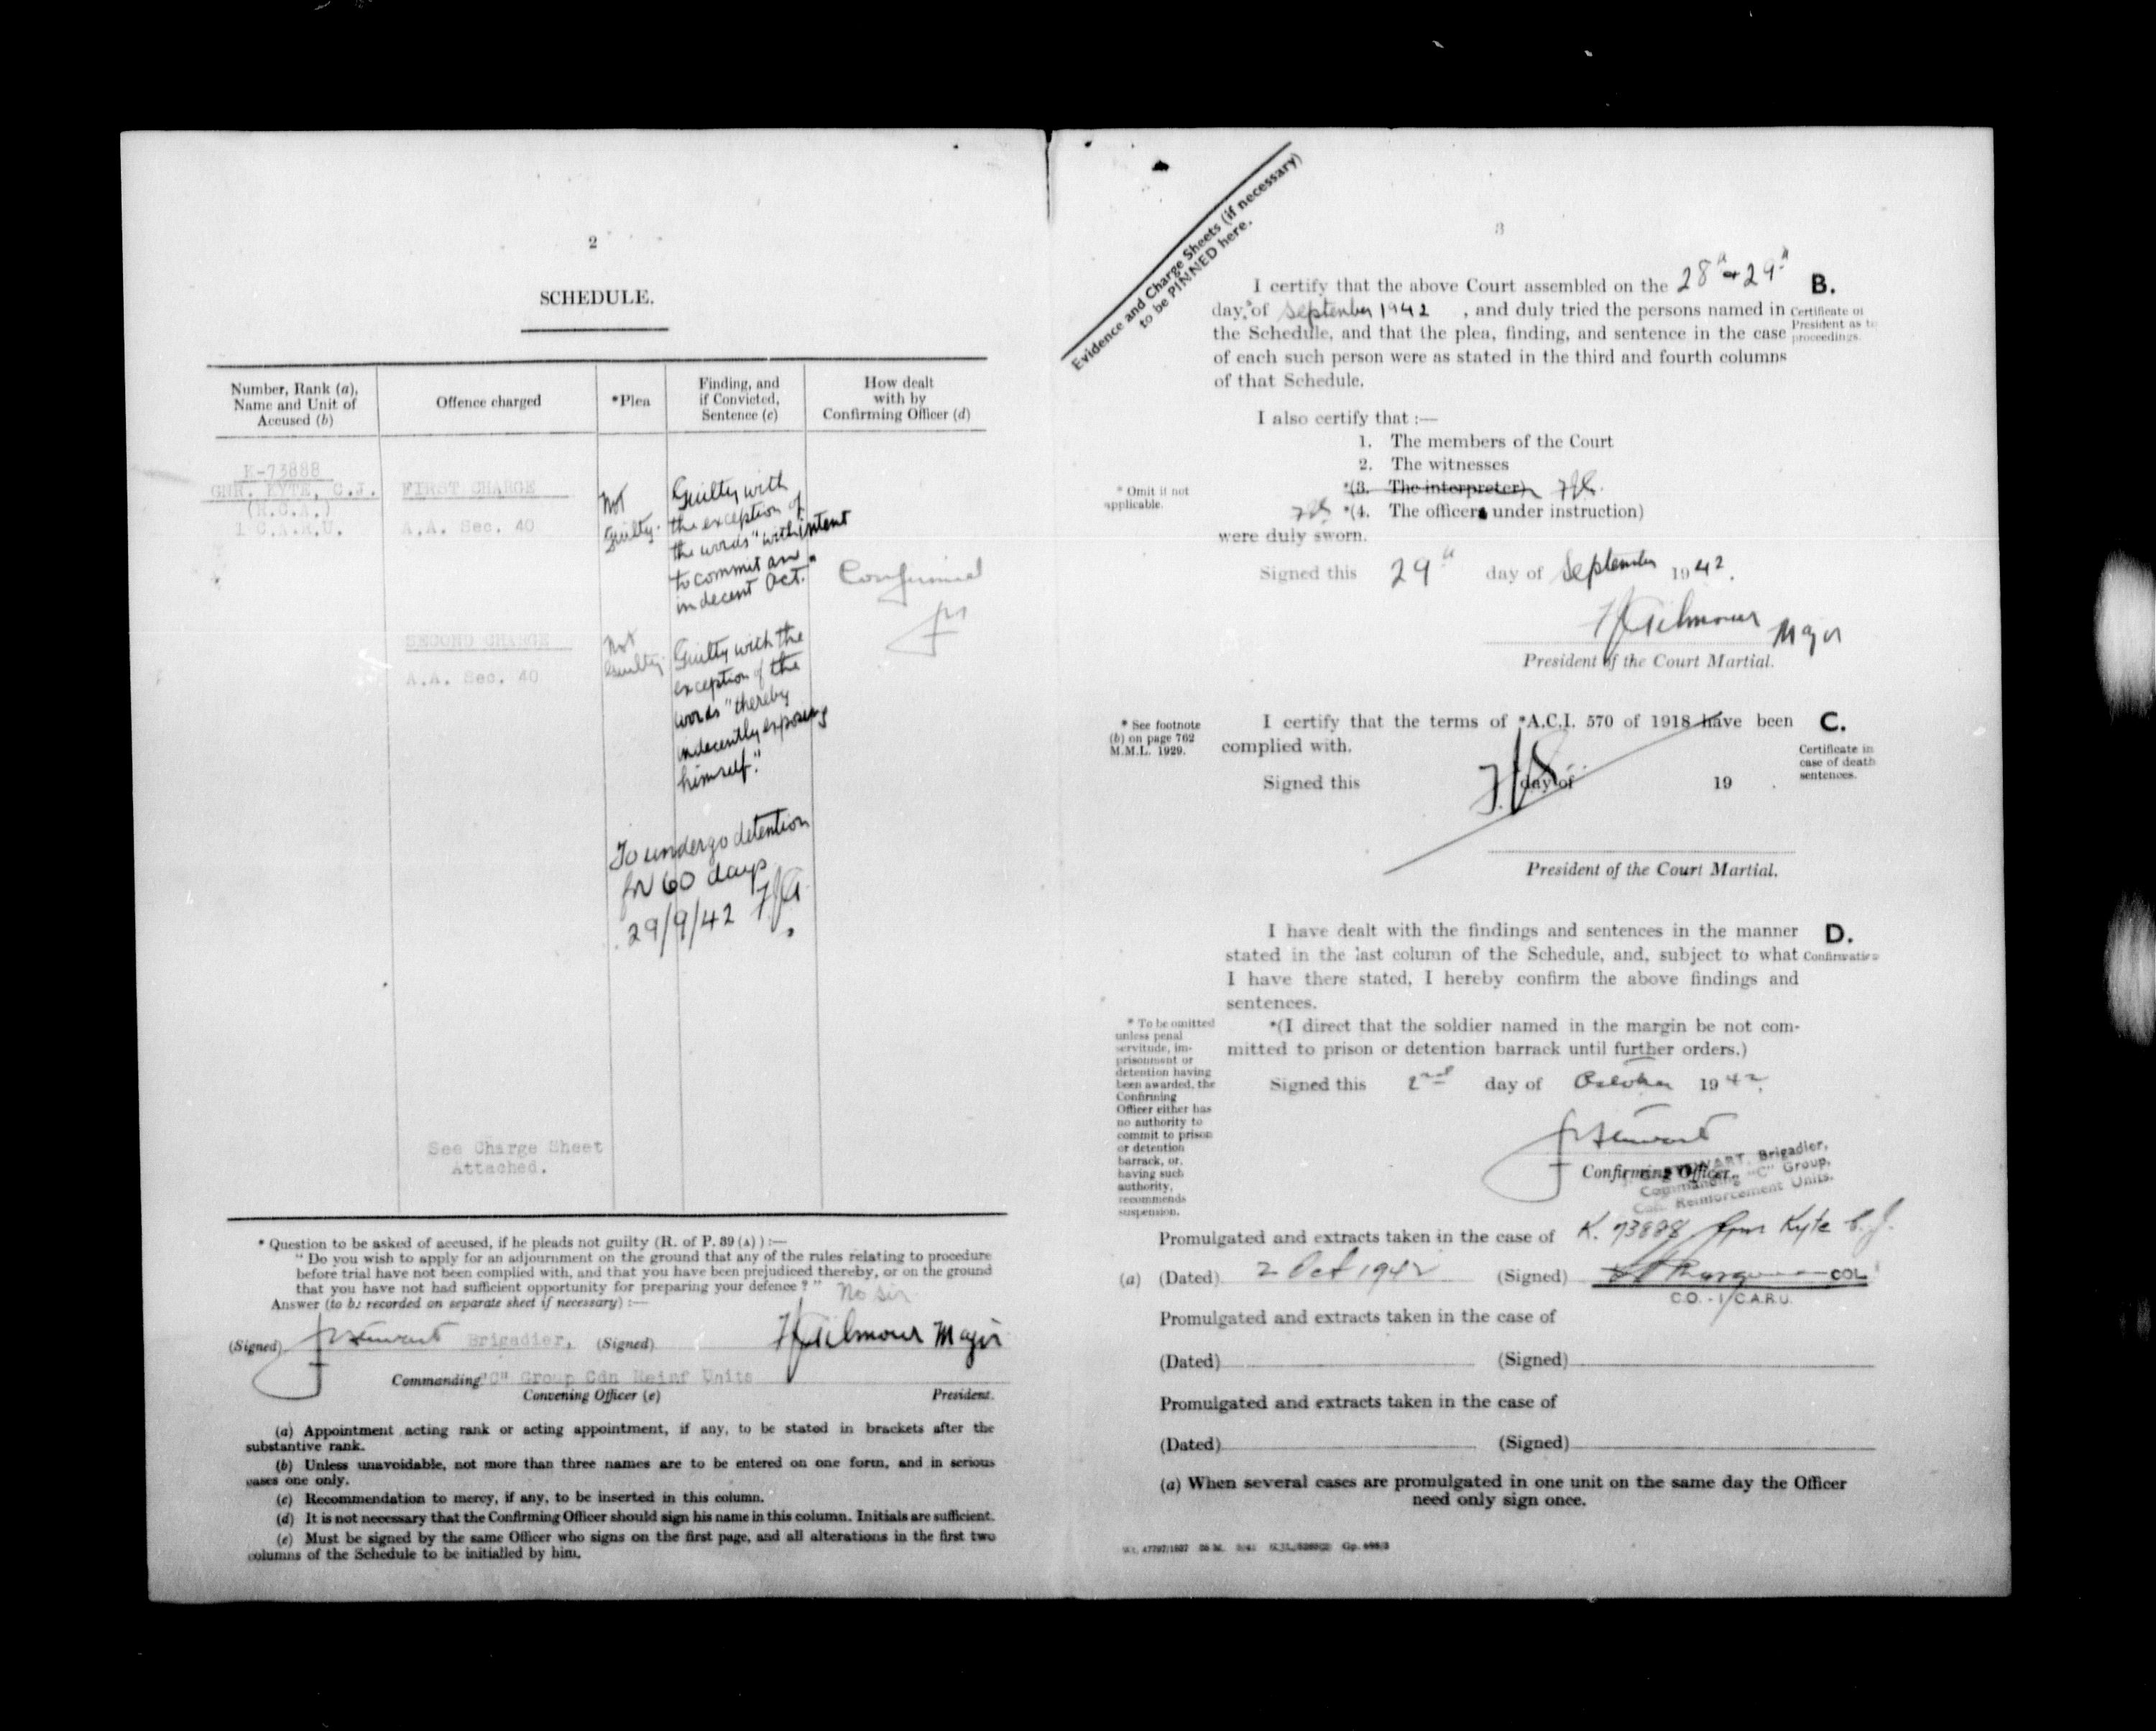 2
SCHEDULE.
Number, Rank (a),
Name and Unit of
Accused (b)
Offence charged
*Plea
Finding, and
if Convicted,
Sentence (c)
How dealt
with by
Confirming Officer (d)
K-73888
GNR. KYTE, C.J.
(R.C.A.)
1 C.A.R.U.
FIRST CHARGE
A.A. Sec. 40
Not
Guilty.
Guilty with
the exception of
the words "with intent
to commit an
indecent act."
Confirmed
SECOND CHARGE
A.A. Sec. 40
Not
Guilty
Guilty with the
exception of the
words "thereby
indecently exposing
himself."
To undergo detention
for 60 days
29/9/42 FJG
See Charge Sheet
Attached.
* Question to be asked of accused, if he pleads not guilty (R. of P. 39 (A) ) :—
" Do you wish to apply for an adjournment on the ground that any of the rules relating to procedure
before trial have not been complied with, and that you have been prejudiced thereby, or on the ground
that you have not had sufficient opportunity for preparing your defence ? " No sir
Answer (to be recorded on separate sheet if necessary) :—
(Signed) J Stewart Brigadier, (Signed) FJ Gilmour Major
Commanding "C" Group Cdn Reinf Units
Convening Officer (e) President.
(a) Appointment acting rank or acting appointment, if any, to be stated in brackets after the
substantive rank.
(b) Unless unavoidable, not more than three names are to be entered on one form, and in serious
cases one only.
(c) Recommendation to mercy, if any, to be inserted in this column.
(d) It is not necessary that the Confirming Officer should sign his name in this column. Initials are sufficient.
(e) Must be signed by the same Officer who signs on the first page, and all alterations in the first two
columns of the Schedule to be initialled by him.
Evidence and Charge Sheets (if necessary)
to be PINNED here.
3
I certify that the above Court assembled on the 28th & 29th
days of September 1942 , and duly tried the persons named in
the Schedule, and that the plea, finding, and sentence in the case
of each such person were as stated in the third and fourth columns
of that Schedule.
B.
Certificate of
President as to
proceedings.
I also certify that :—
1. The members of the Court
2. The witnesses
*(3. The interpreter) FJG.
FJG *(4. The officers under instruction)
were duly sworn.
* Omit if not
applicable.
Signed this 29th day of September 1942.
FJ Gilmour Major
President of the Court Martial.
* See footnote
(b) on page 762
M.M.L. 1929.
I certify that the terms of *A.C.I. 570 of 1918 have been
complied with.
C.
Certificate in
case of death
sentences.
Signed this day of 19 .
FJG
President of the Court Martial.
I have dealt with the findings and sentences in the manner
stated in the last column of the Schedule, and, subject to what
I have there stated, I hereby confirm the above findings and
sentences.
D.
Confirmation
* To be omitted
unless penal
servitude, im-
prisonment or
detention having
been awarded, the
Confirming
Officer either has
no authority to
commit to prison
or detention
barrack, or,
having such
authority,
recommends
suspension.
*(I direct that the soldier named in the margin be not com-
mitted to prison or detention barrack until further orders.)
Signed this 2nd day of October 1942.
J Stewart
Confirming Officer.
STEWART, Brigadier,
Commanding "C" Group,
Cdn. Reinforcement Units.
Promulgated and extracts taken in the case of K. 73888 Gnr Kyte C. J.
(a) (Dated) 2 Oct 1942 (Signed) COL
C.O. - 1 C.A.R.U.
Promulgated and extracts taken in the case of
(Dated) (Signed)
Promulgated and extracts taken in the case of
(Dated) (Signed)
(a) When several cases are promulgated in one unit on the same day the Officer
need only sign once.